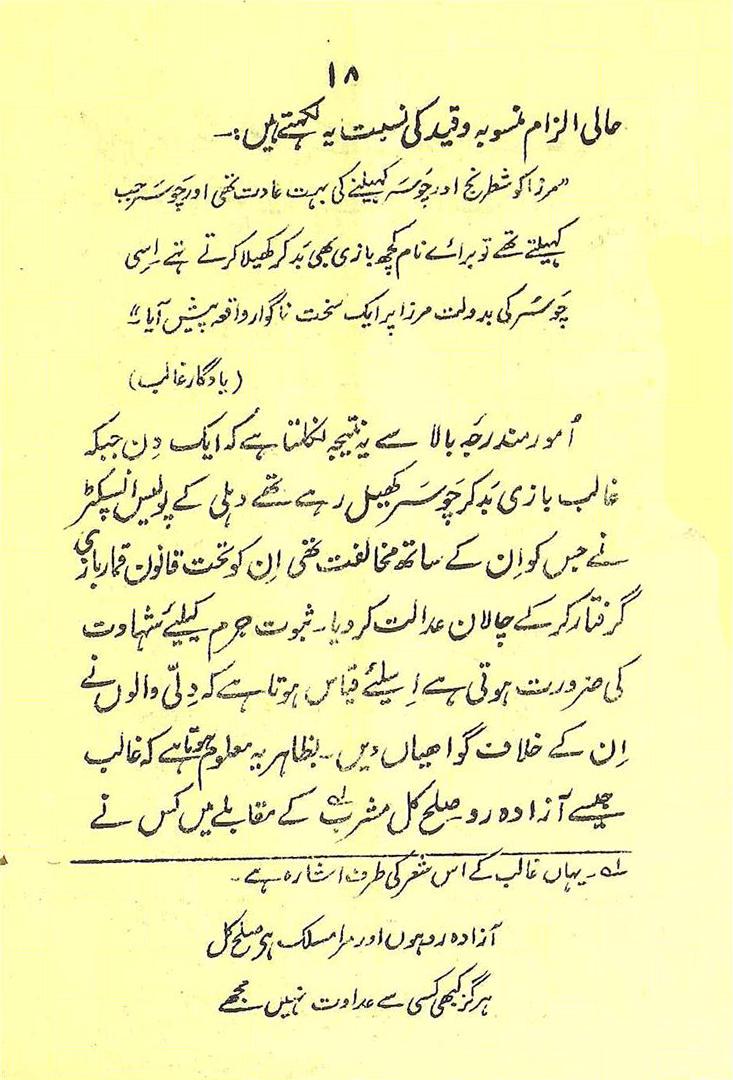 ۱۸
حالی الزام منسوبہ وقید کی نسبت یہ لکھتے ہیں:۔
"مرزا کو شطرنج اور چَوسَر کھیلنے کی بہت عادت تھی اور چَوسَر جب
کھیلتے تھے تو برائے نام کچھ بازی بھی بَد کر کھیلا کرتے تھے اِسی
چَوسَر کی بدولت مرزا پر ایک سخت ناگوار واقعہ پیش آیا۔"
(یادگار غالب)
اُمور مندرجَہ بالا سے یہ نتیجہ نکلتا ہے کہ ایک دِن جبکہ
غالب بازی بَد کر چَوسَر کھیل رہے تھے دہلی کے پولیس انسپکٹر
نے جس کو اِن کے ساتھ مخالفت تھی اِن کو تحت قانون قمار بازی
گرفتار کر کے چالان عدالت کر دیا۔ ثبوت جرم کیلئے شہادت
کی ضرورت ہوتی ہے اِسلئے قیاس ہوتا ہے کہ دِلّی والوں نے
اِن کے خلاف گواھیاں دیں۔ بظاہر یہ معلوم ہوتا ہے کہ غالب
جیسے آزادہ رو صلح کل مشرب لہ کے مقابلے میں کس نے
لہ۔ یہاں غالب کے اس شعر کی طرف اشارہ ہے۔
آزادہ رو ہوں اور مرا مسلک ہی صلح کل
ہرگز کبھی کسی سے عداوت نہیں مجھے